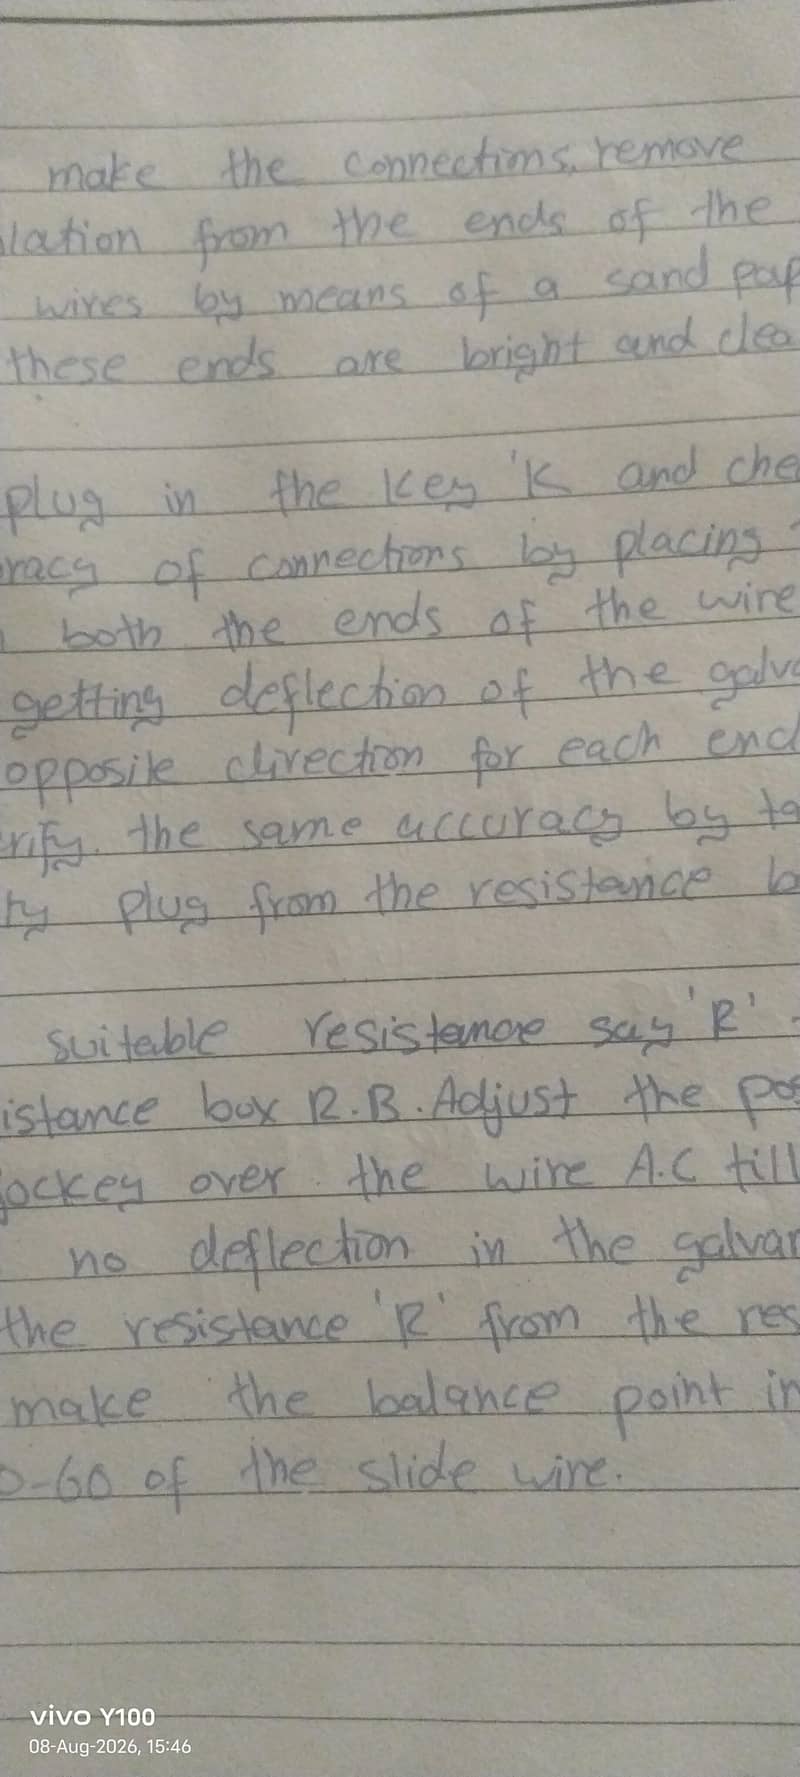 make the connections, remove
lation from the ends of the
wires by means of a sand pap
these ends are bright and clea
plug in the key 'K and che
racy of connections by placing
both the ends of the wire
getting deflection of the galva
opposite direction for each end
rify. the same accuracy by ta
ty plug from the resistance b
suitable resistance say 'R'
istance box R.B. Adjust the pos
jockey over the wire A.C till
no deflection in the galvan
the resistance 'R' from the res
make the balance point in
0-60 of the slide wire.
vivo Y100
08-Aug-2026, 15:46